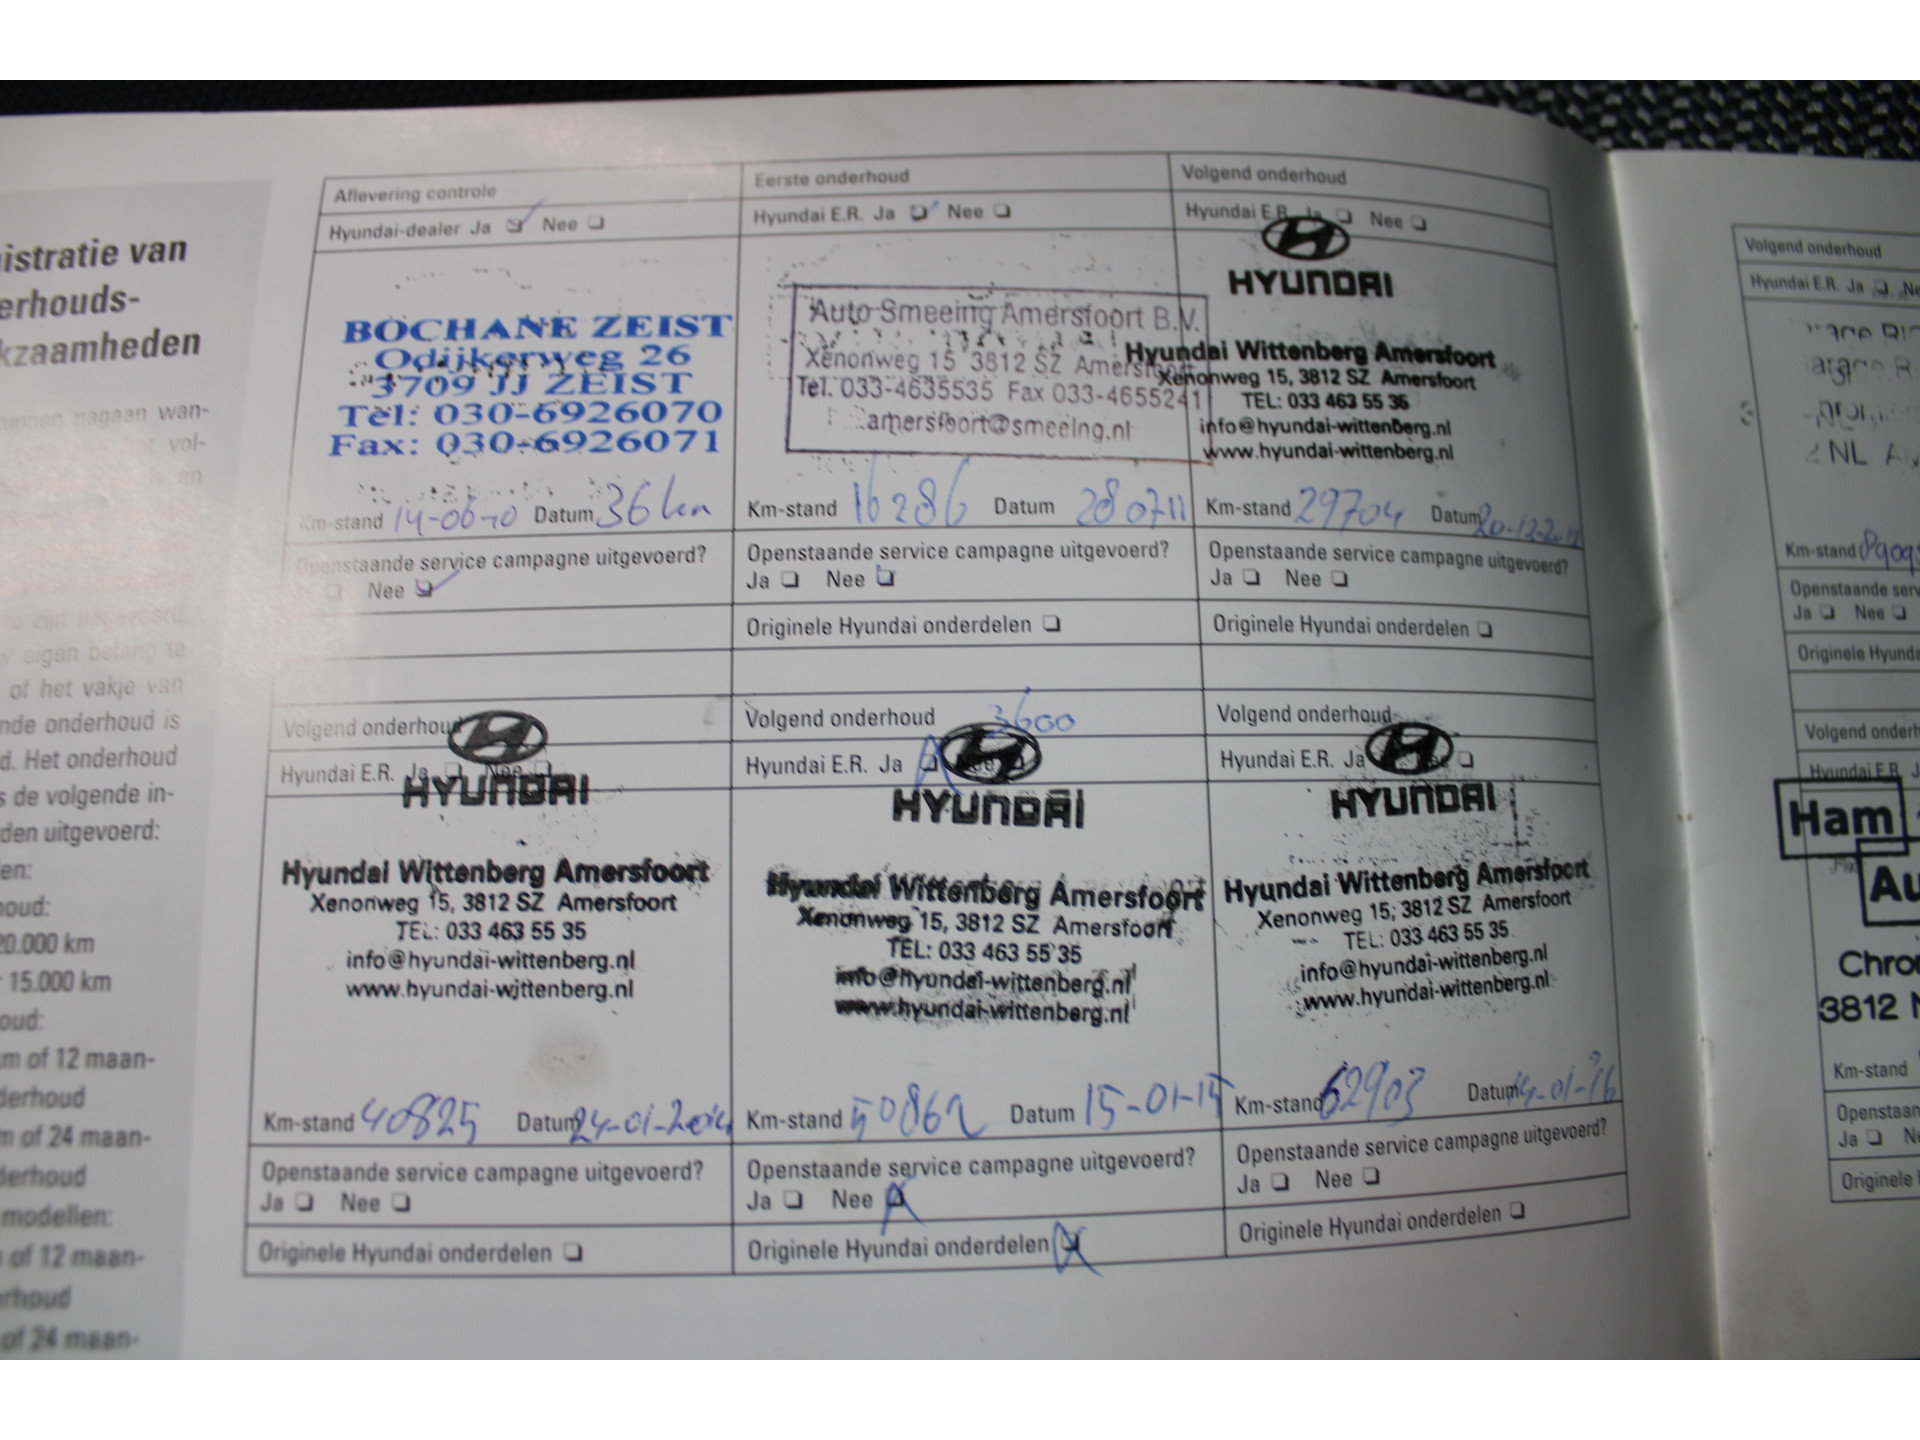 istratie van
erhouds-
kzaamheden
nagaan wan-
vol-
is en
eigen belang te
of het vakje van
nde onderhoud is
d. Het onderhoud
s de volgende in-
den uitgevoerd:
en:
houd:
20.000 km
15.000 km
oud:
m of 12 maan-
derhoud
m of 24 maan-
derhoud
modellen:
of 12 maan-
rhoud
of 24 maan-
Aflevering controle
Hyundai-dealer Ja Nee
BOCHANE ZEIST
Odijkerweg 26
3709 JJ ZEIST
Tel: 030-6926070
Fax: 030-6926071
Km-stand 14-06-10 Datum 36 km
Openstaande service campagne uitgevoerd?
Nee
Eerste onderhoud
Hyundai E.R. Ja Nee
Auto Smeeing Amersfoort B.V.
Xenonweg 15 3812 SZ Amersfoort
Tel. 033-4635535 Fax 033-4655241
amersfoort@smeeing.nl
Km-stand 16286 Datum 280711
Openstaande service campagne uitgevoerd?
Ja Nee
Originele Hyundai onderdelen
Volgend onderhoud
Hyundai E.R. Ja Nee
HYUNDAI
Hyundai Wittenberg Amersfoort
Xenonweg 15, 3812 SZ Amersfoort
TEL: 033 463 55 35
info@hyundai-wittenberg.nl
www.hyundai-wittenberg.nl
Km-stand 29704 Datum 20-12-2012
Openstaande service campagne uitgevoerd?
Ja Nee
Originele Hyundai onderdelen
Volgend onderhoud
Hyundai E.R. Ja Nee
HYUNDAI
Hyundai Wittenberg Amersfoort
Xenonweg 15, 3812 SZ Amersfoort
TEL: 033 463 55 35
info@hyundai-wittenberg.nl
www.hyundai-wittenberg.nl
Km-stand 40825 Datum 24-01-2014
Openstaande service campagne uitgevoerd?
Ja Nee
Originele Hyundai onderdelen
Volgend onderhoud 3600
Hyundai E.R. Ja Nee
HYUNDAI
Hyundai Wittenberg Amersfoort
Xenonweg 15, 3812 SZ Amersfoort
TEL: 033 463 55 35
info@hyundai-wittenberg.nl
www.hyundai-wittenberg.nl
Km-stand 50862 Datum 15-01-15
Openstaande service campagne uitgevoerd?
Ja Nee
Originele Hyundai onderdelen
Volgend onderhoud
Hyundai E.R. Ja Nee
HYUNDAI
Hyundai Wittenberg Amersfoort
Xenonweg 15, 3812 SZ Amersfoort
TEL: 033 463 55 35
info@hyundai-wittenberg.nl
www.hyundai-wittenberg.nl
Km-stand 62903 Datum 14-01-16
Openstaande service campagne uitgevoerd?
Ja Nee
Originele Hyundai onderdelen
Volgend onderhoud
Hyundai E.R. Ja Ne
NL
Km-stand
Openstaande serv
Ja Nee
Originele Hyunda
Volgend onderh
Hyundai E.R. J
Ham
Au
Chro
3812 N
Km-stand
Openstaan
Ja
Originele